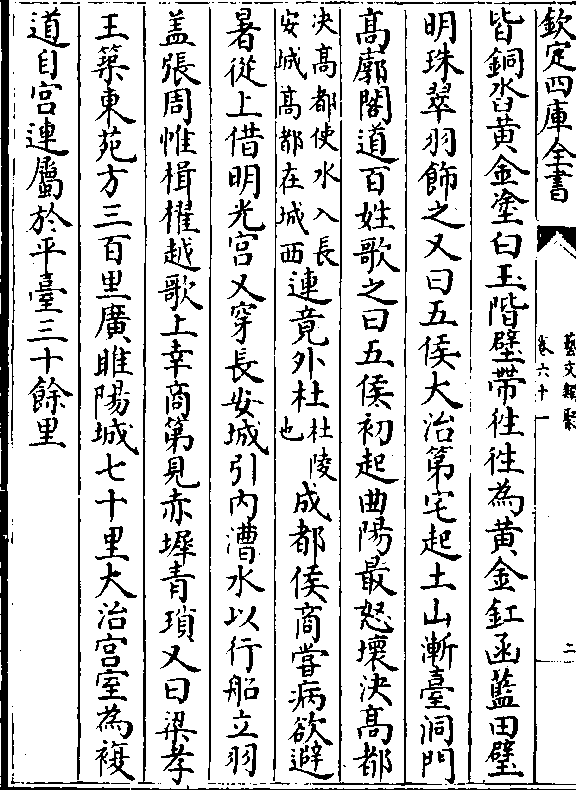 欽定四庫全書
藝文類聚
卷六十一
二
皆銅沓黃金塗白玉階壁帶往往為黃金釭函藍田璧
明珠翠羽飾之又曰五侯大治第宅起土山漸臺洞門
髙廓閣道百姓歌之曰五侯初起曲陽最怒壞決髙都
決髙都使水入長
安城髙都在城西
連竟外杜
杜陵
也
成都侯商嘗病欲避
暑從上借明光宫又穿長安城引內漕水以行船立羽
盖張周帷楫櫂越歌上幸商第見赤墀青瑣又曰梁孝
王築東苑方三百里廣睢陽城七十里大治宫室為複
道自宫連屬於平臺三十餘里